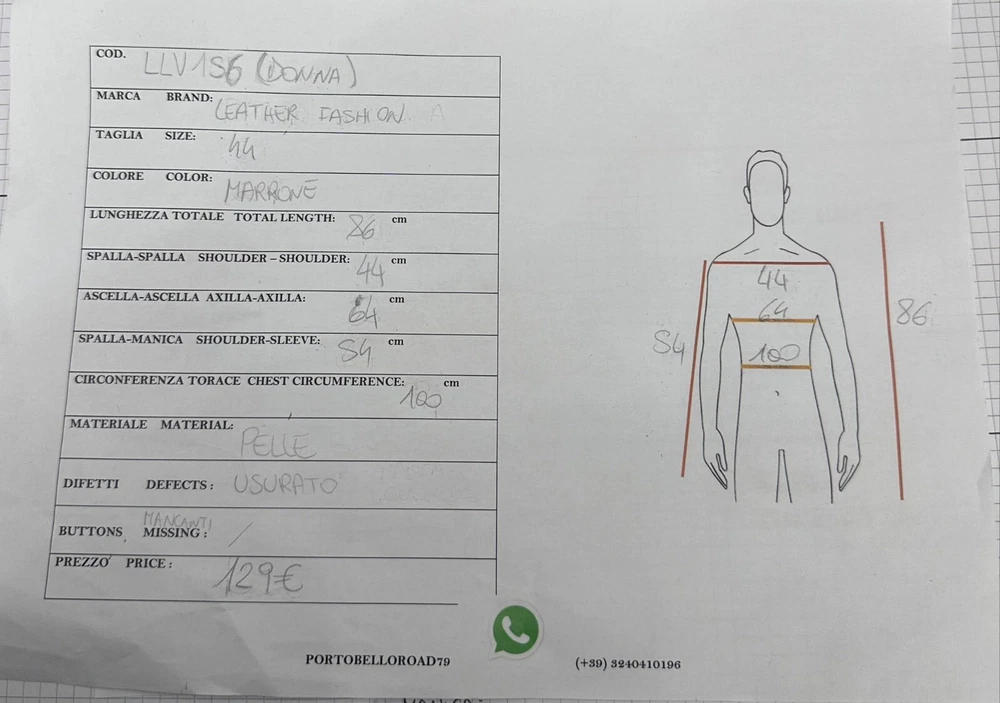 COD. LLV1S6 (DONNA)
MARCA BRAND: LEATHER FASHION
TAGLIA SIZE: 44
COLORE COLOR: MARRONE
LUNGHEZZA TOTALE TOTAL LENGTH: 86 cm
SPALLA-SPALLA SHOULDER – SHOULDER: 44 cm
ASCELLA-ASCELLA AXILLA-AXILLA: 64 cm
SPALLA-MANICA SHOULDER-SLEEVE: 54 cm
CIRCONFERENZA TORACE CHEST CIRCUMFERENCE: 100 cm
MATERIALE MATERIAL: PELLE
DIFETTI DEFECTS: USURATO
MANCANTI
BUTTONS MISSING: /
PREZZO PRICE: 129€
44
64
54
100
86
PORTOBELLOROAD79
(+39) 3240410196